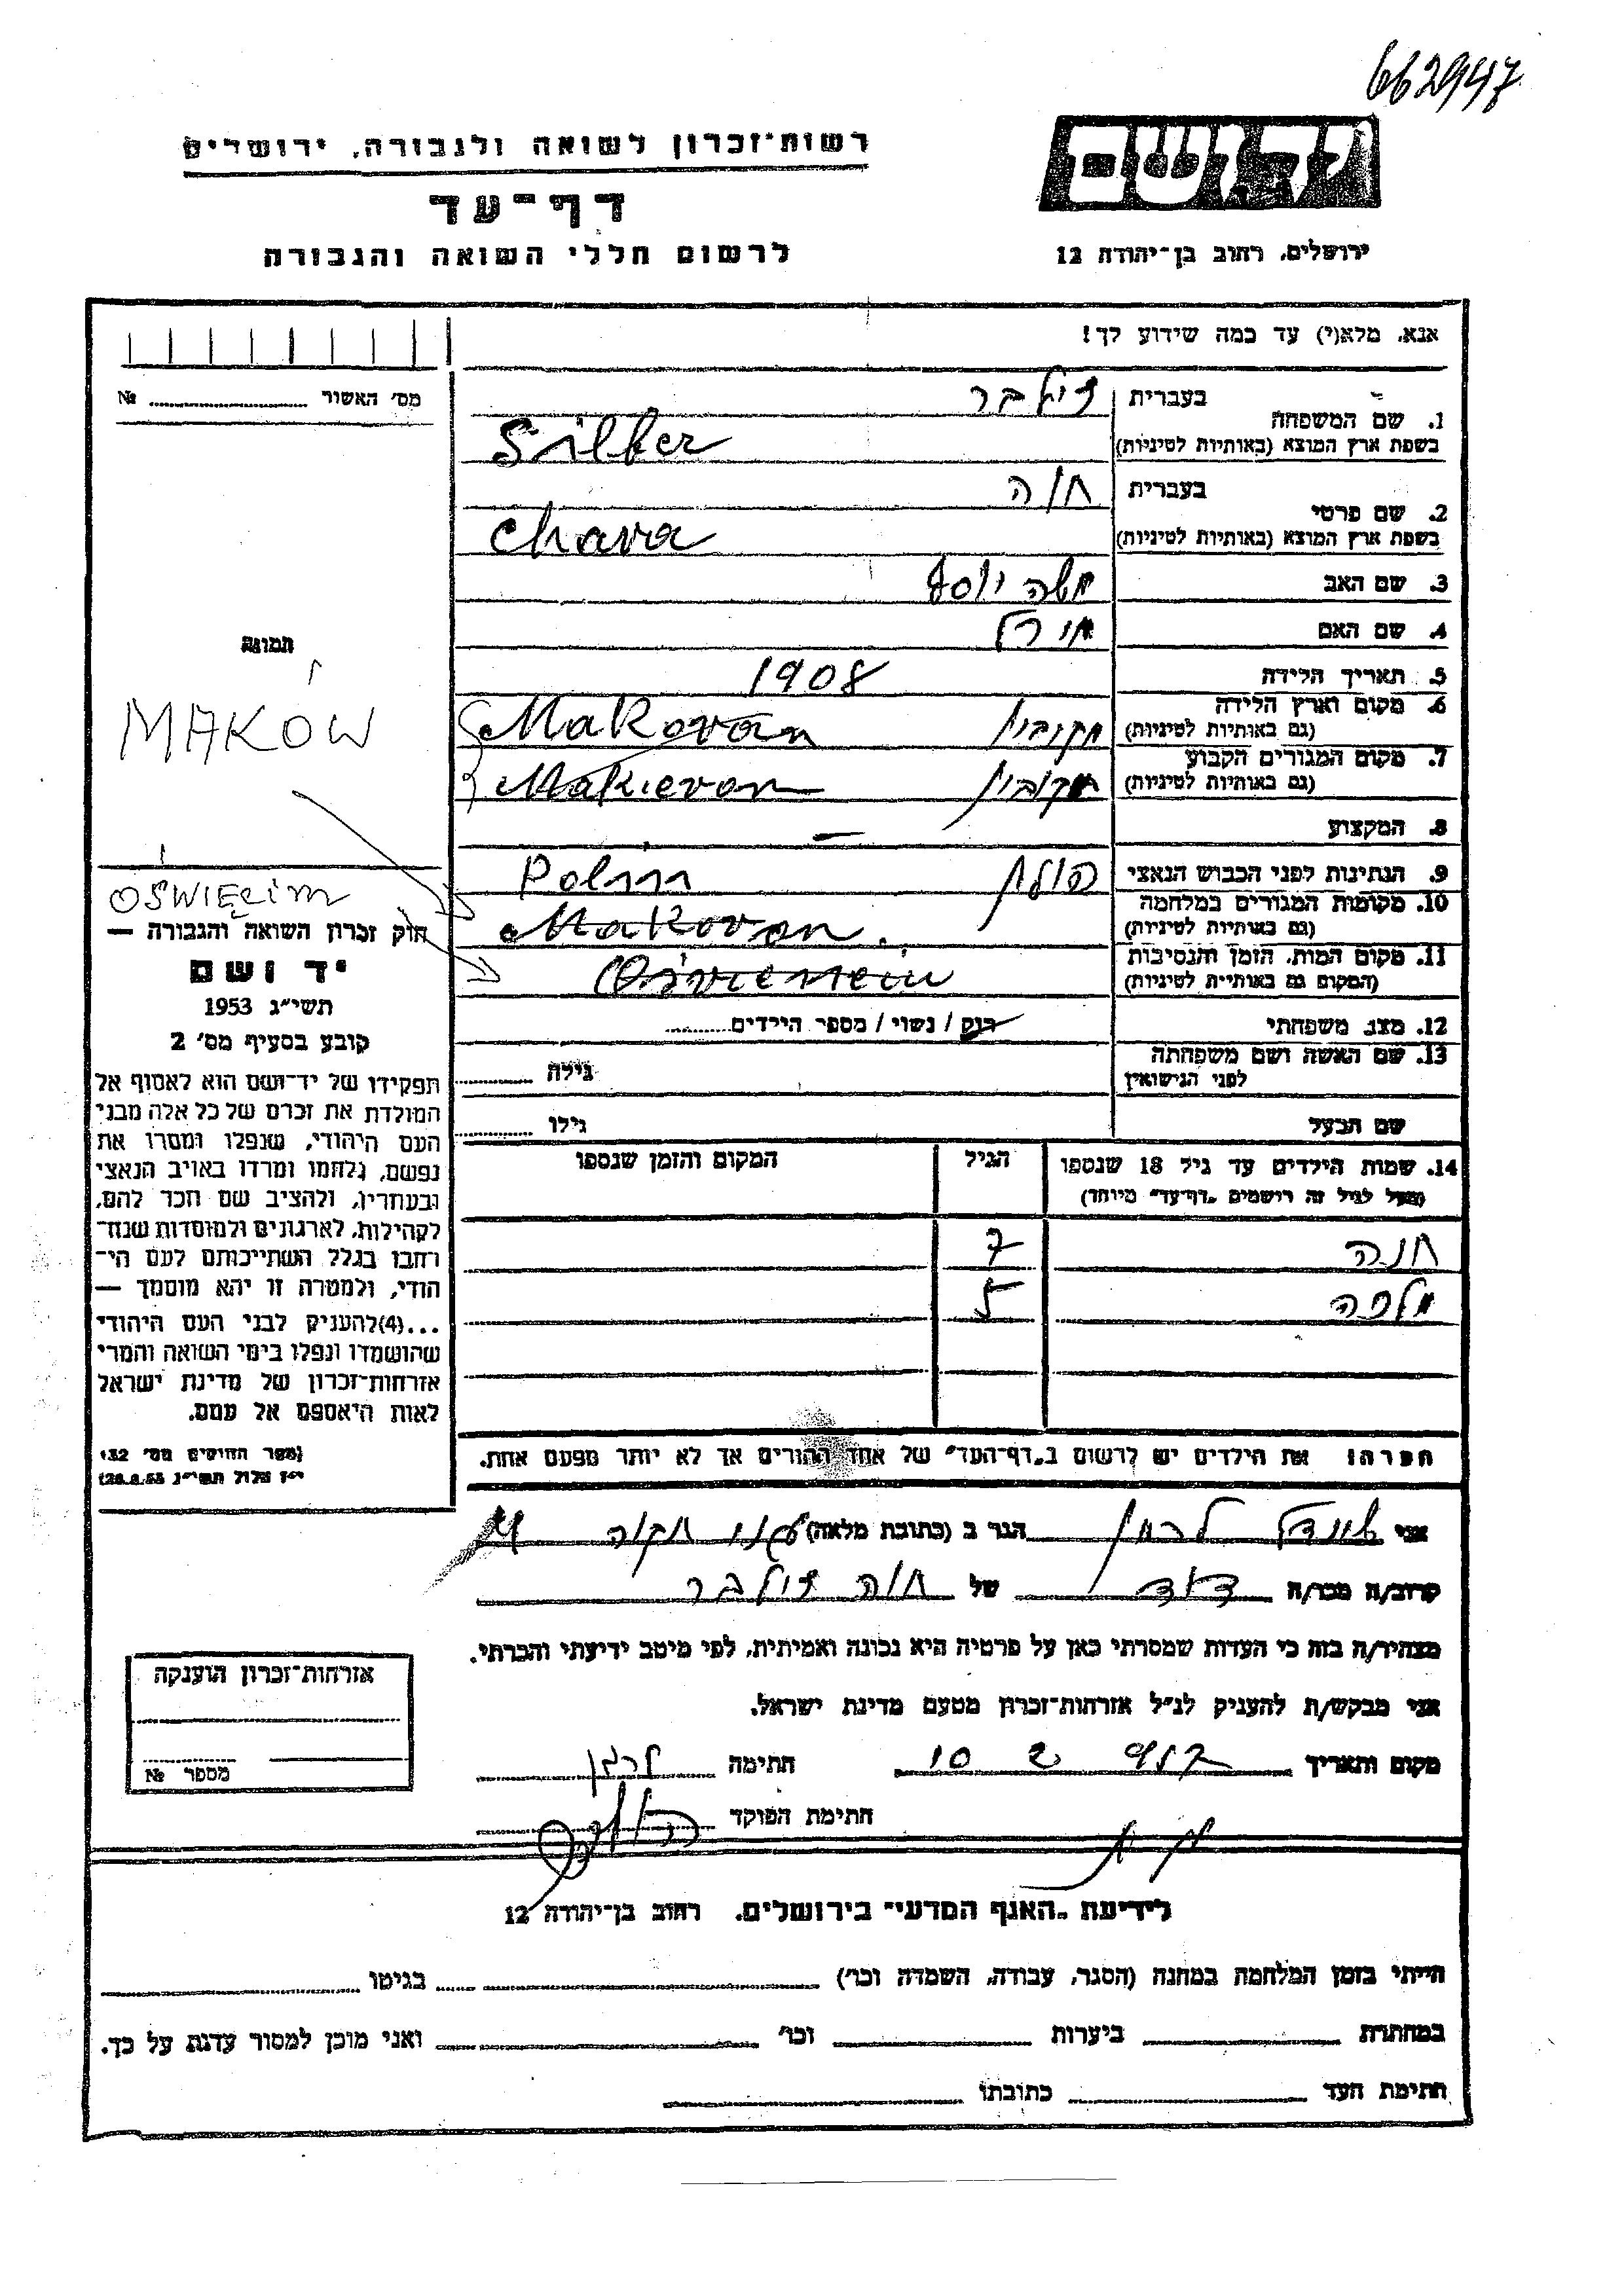 662947
רשות־זכרון לשואה ולגבורה, ירושלים
דף־עד
לרשום חללי השואה והגבורה
יד ושם
ירושלים, רחוב בן־יהודה 12
אנא, מלא(י) עד כמה שידוע לך!
מס׳ האשור № 
1. שם המשפחה
בעברית זילבר
בשפת ארץ המוצא (באותיות לטיניות) Silber
2. שם פרטי
בעברית חוה
בשפת ארץ המוצא (באותיות לטיניות) Chava
3. שם האב משה יוסף
4. שם האם
5. תאריך הלידה 1908
6. מקום וארץ הלידה
(גם באותיות לטיניות) Makovan
7. מקום המגורים הקבוע
(גם באותיות לטיניות) Makievan
8. המקצוע —
9. הנתינות לפני הכבוש הנאצי Polin
10. מקומות המגורים במלחמה
(גם באותיות לטיניות) Makovan
11. מקום המות, הזמן והנסיבות
(המקום גם באותיות לטיניות)
12. מצב משפחתי רוק / נשוי / מספר הילדים
13. שם האשה ושם משפחתה
לפני הנישואין גילה
שם הבעל גילו
תמונה
MAKÓW
OŚWIĘCIM
חוק זכרון השואה והגבורה —
יד ושם
תשי״ג 1953
קובע בסעיף מס׳ 2
תפקידו של יד־ושם הוא לאסוף אל
המולדת את זכרם של כל אלה מבני
העם היהודי, שנפלו ומסרו את
נפשם, נלחמו ומרדו באויב הנאצי
ובעוזריו, ולהציב שם וזכר להם,
לקהילות, לארגונים ולמוסדות שנח־
רבו בגלל השתייכותם לעם הי־
הודי, ולמטרה זו יהא מוסמך —
...(4) להעניק לבני העם היהודי
שהושמדו ונפלו בימי השואה והמרי
אזרחות־זכרון של מדינת ישראל
לאות היאספם אל עמם.
(ספר החוקים מס׳ 132
י״ז אלול תשי״ג 28.8.53)
14. שמות הילדים עד גיל 18 שנספו
(מעל לגיל זה רושמים „דף־עד״ מיוחד)
הגיל
המקום והזמן שנספו
חנה 7
מלכה 5
הערה: את הילדים יש לרשום ב„דף־העד״ של אחד ההורים אך לא יותר מפעם אחת.
אני הגר ב (כתובת מלאה)
קרוב/ה מכר/ה דוד של חוה זילבר
מצהיר/ה בזה כי העדות שמסרתי כאן על פרטיה היא נכונה ואמיתית, לפי מיטב ידיעתי והכרתי.
אני מבקש/ת להעניק לנ״ל אזרחות־זכרון מטעם מדינת ישראל.
מקום ותאריך חתימה
חתימת הפוקד
אזרחות־זכרון הוענקה
מספר №
לידיעת „האגף המדעי״ בירושלים, רחוב בן־יהודה 12
הייתי בזמן המלחמה במחנה (הסגר, עבודה, השמדה וכו׳) בגיטו
במחתרת ביערות וכו׳ ואני מוכן למסור עדות על כך.
חתימת העד כתובתו